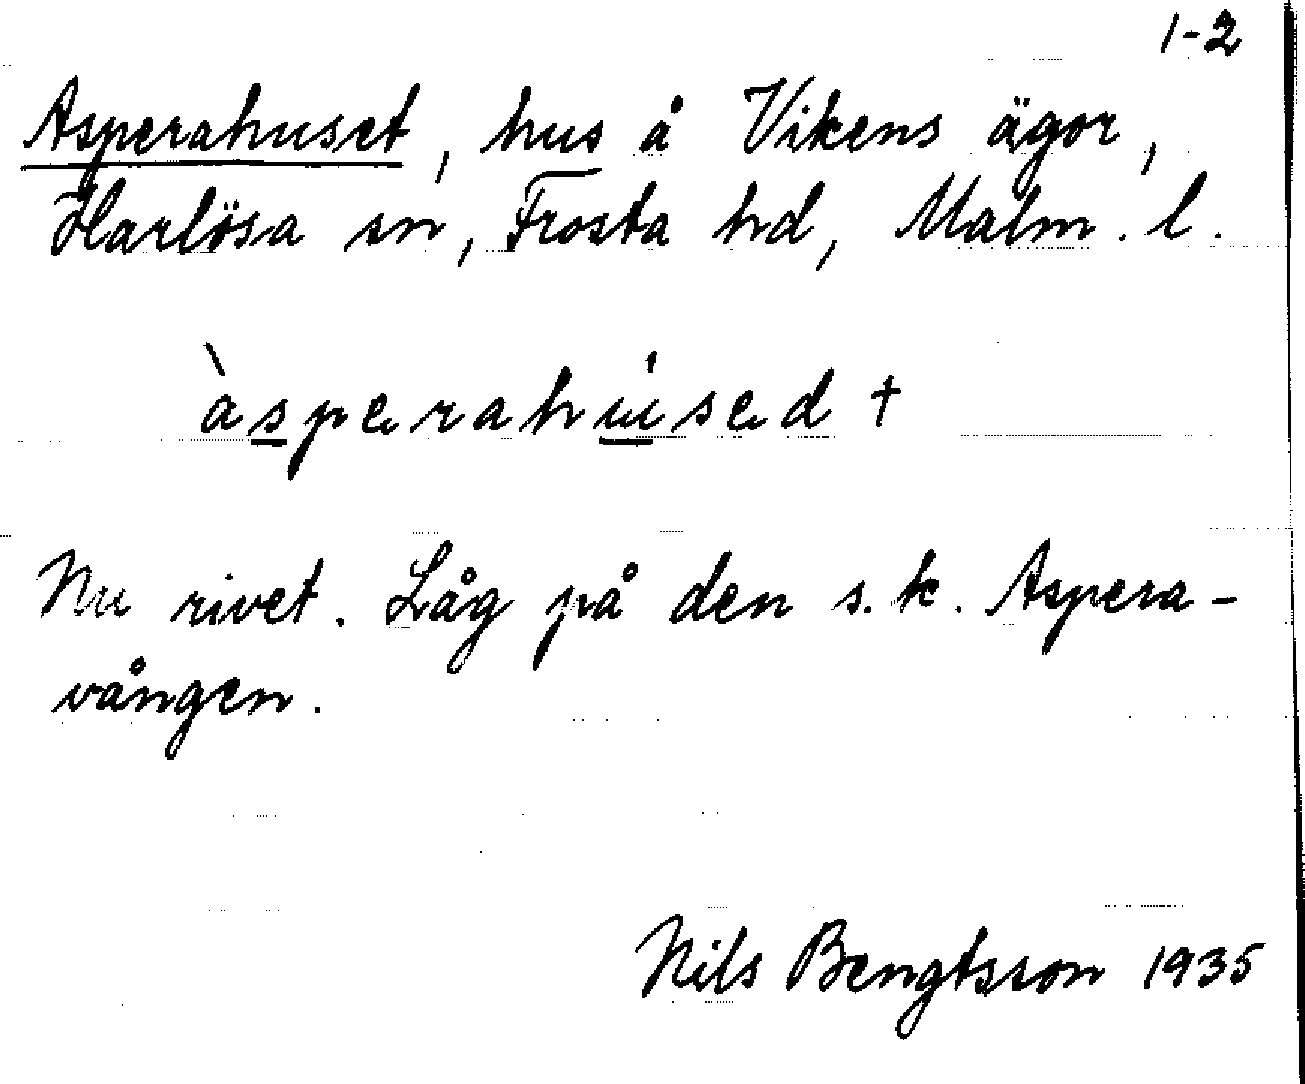 1-2
Asperahuset, hus å Vikens ägor,
Harlösa sn, Frosta hd, Malm. l.
àsperahúsed †
Nu rivet. Låg på den s.k. Aspera-
vången.
Nils Bengtsson 1935